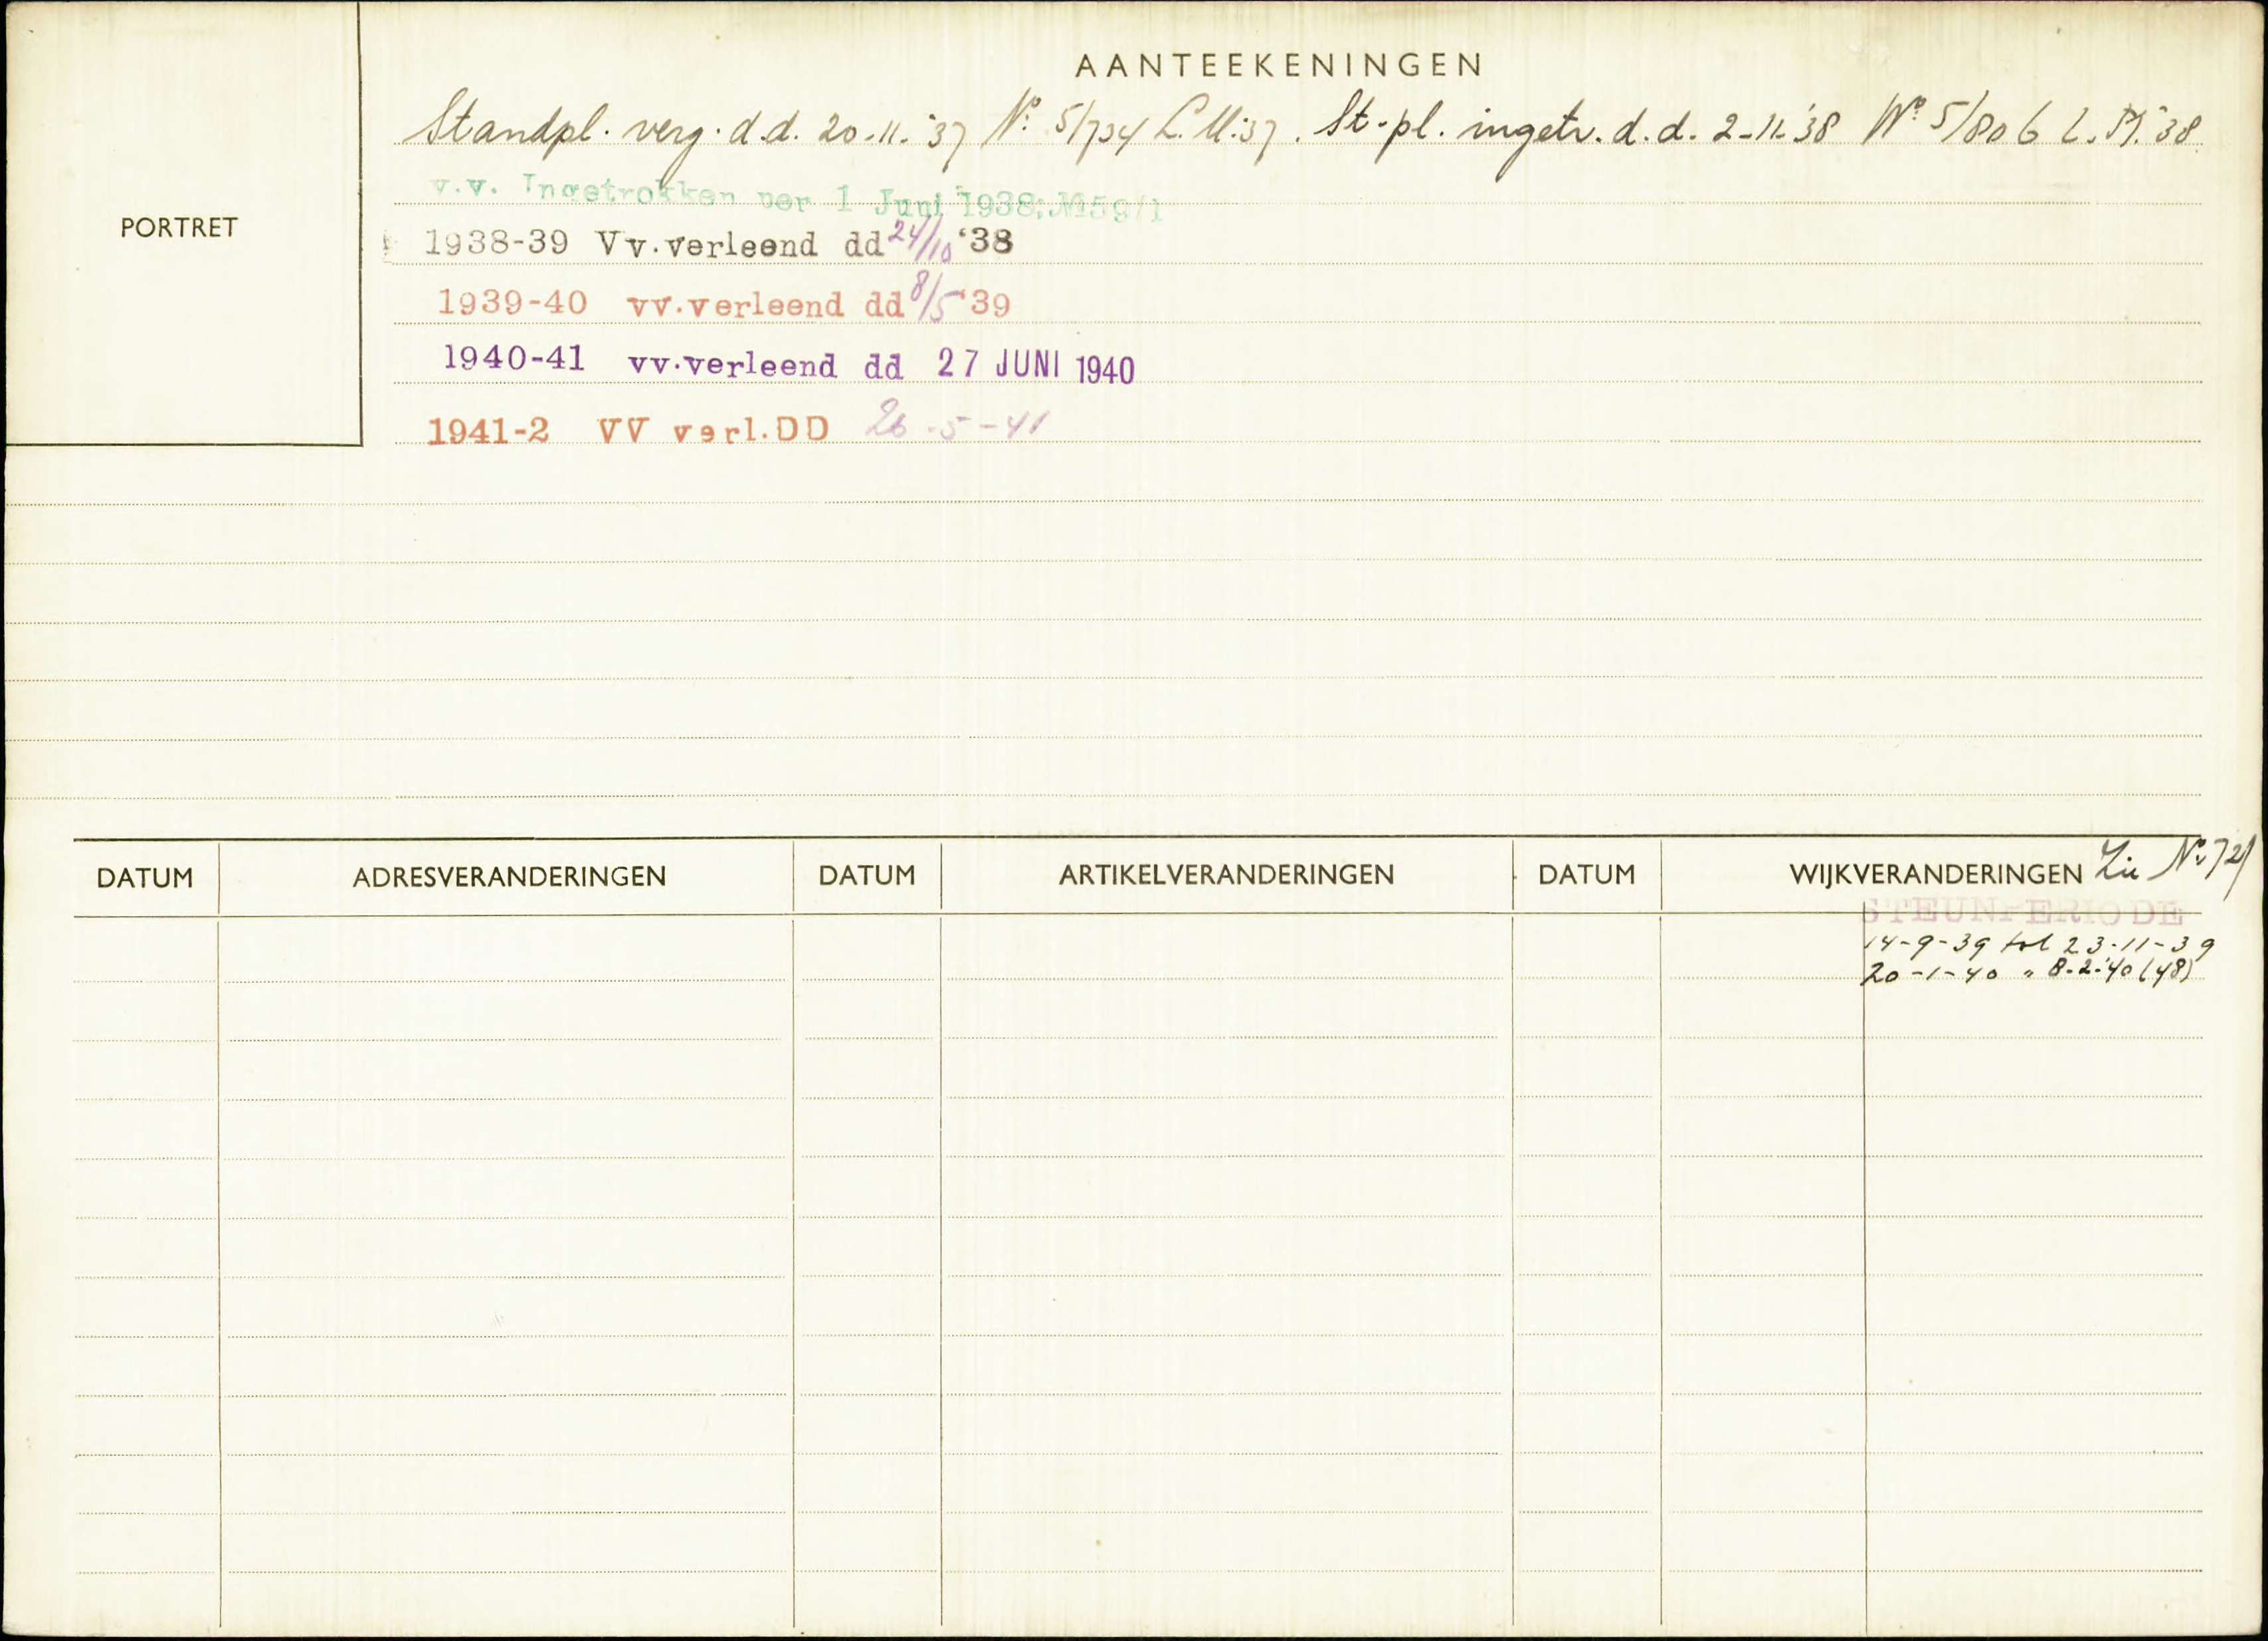 AANTEEKENINGEN
Standpl. verg. d.d. 20-11-'37 No. 5/734 L.M.'37. St-pl. ingetr. d.d. 2-11-'38 No. 5/806 L.M.'38
v.v. Ingetrokken per 1 Juni 1938;
PORTRET
1938-39 Vv.verleend dd 24/10 '38
1939-40 vv.verleend dd 8/5 '39
1940-41 vv.verleend dd 27 JUNI 1940
1941-2 VV verl.DD 26-5-41
DATUM ADRESVERANDERINGEN DATUM ARTIKELVERANDERINGEN DATUM WIJKVERANDERINGEN Zie No. 721
STEUNPERIODE
14-9-39 tot 23-11-39
20-1-40 " 8-2-'40 (48)